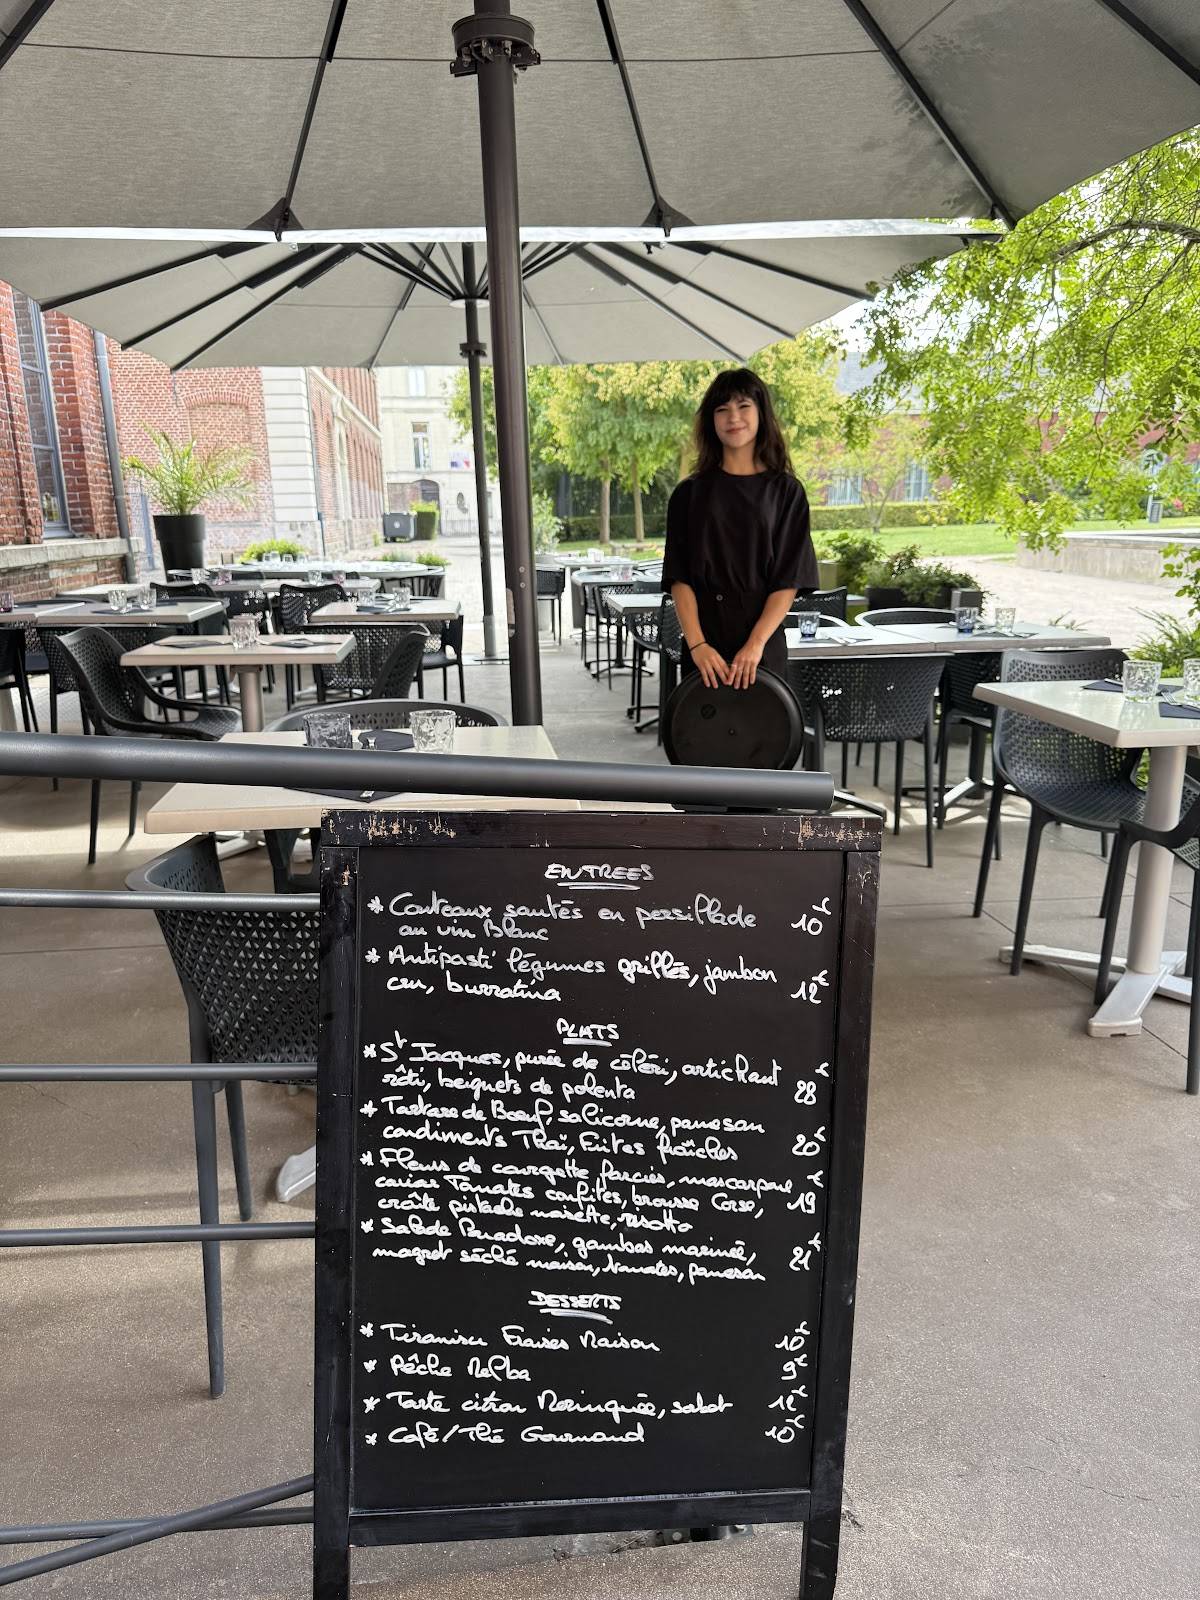 ENTREES
* Couteaux sautés en persillade 10€
au vin Blanc
* Antipasti légumes grillés, jambon
cru, burratina 12€
PLATS
* St Jacques, purée de céleri, artichaut
rôti, beignets de polenta 28€
* Tartare de Bœuf, salicorne, parmesan
condiments Thaï, Frites fraîches 20€
* Fleurs de courgette farcies, mascarpone
caviar Tomates confites, brousse Corse, 19€
croûte pistache noisette, risotto
* Salade Paradoxe, gambas marinée,
magret séché maison, tomates, parmesan 21€
DESSERTS
* Tiramisu Fraises Maison 10€
* Pêche Melba 9€
* Tarte citron Meringuée, sabot 12€
* Café/Thé Gourmand 10€